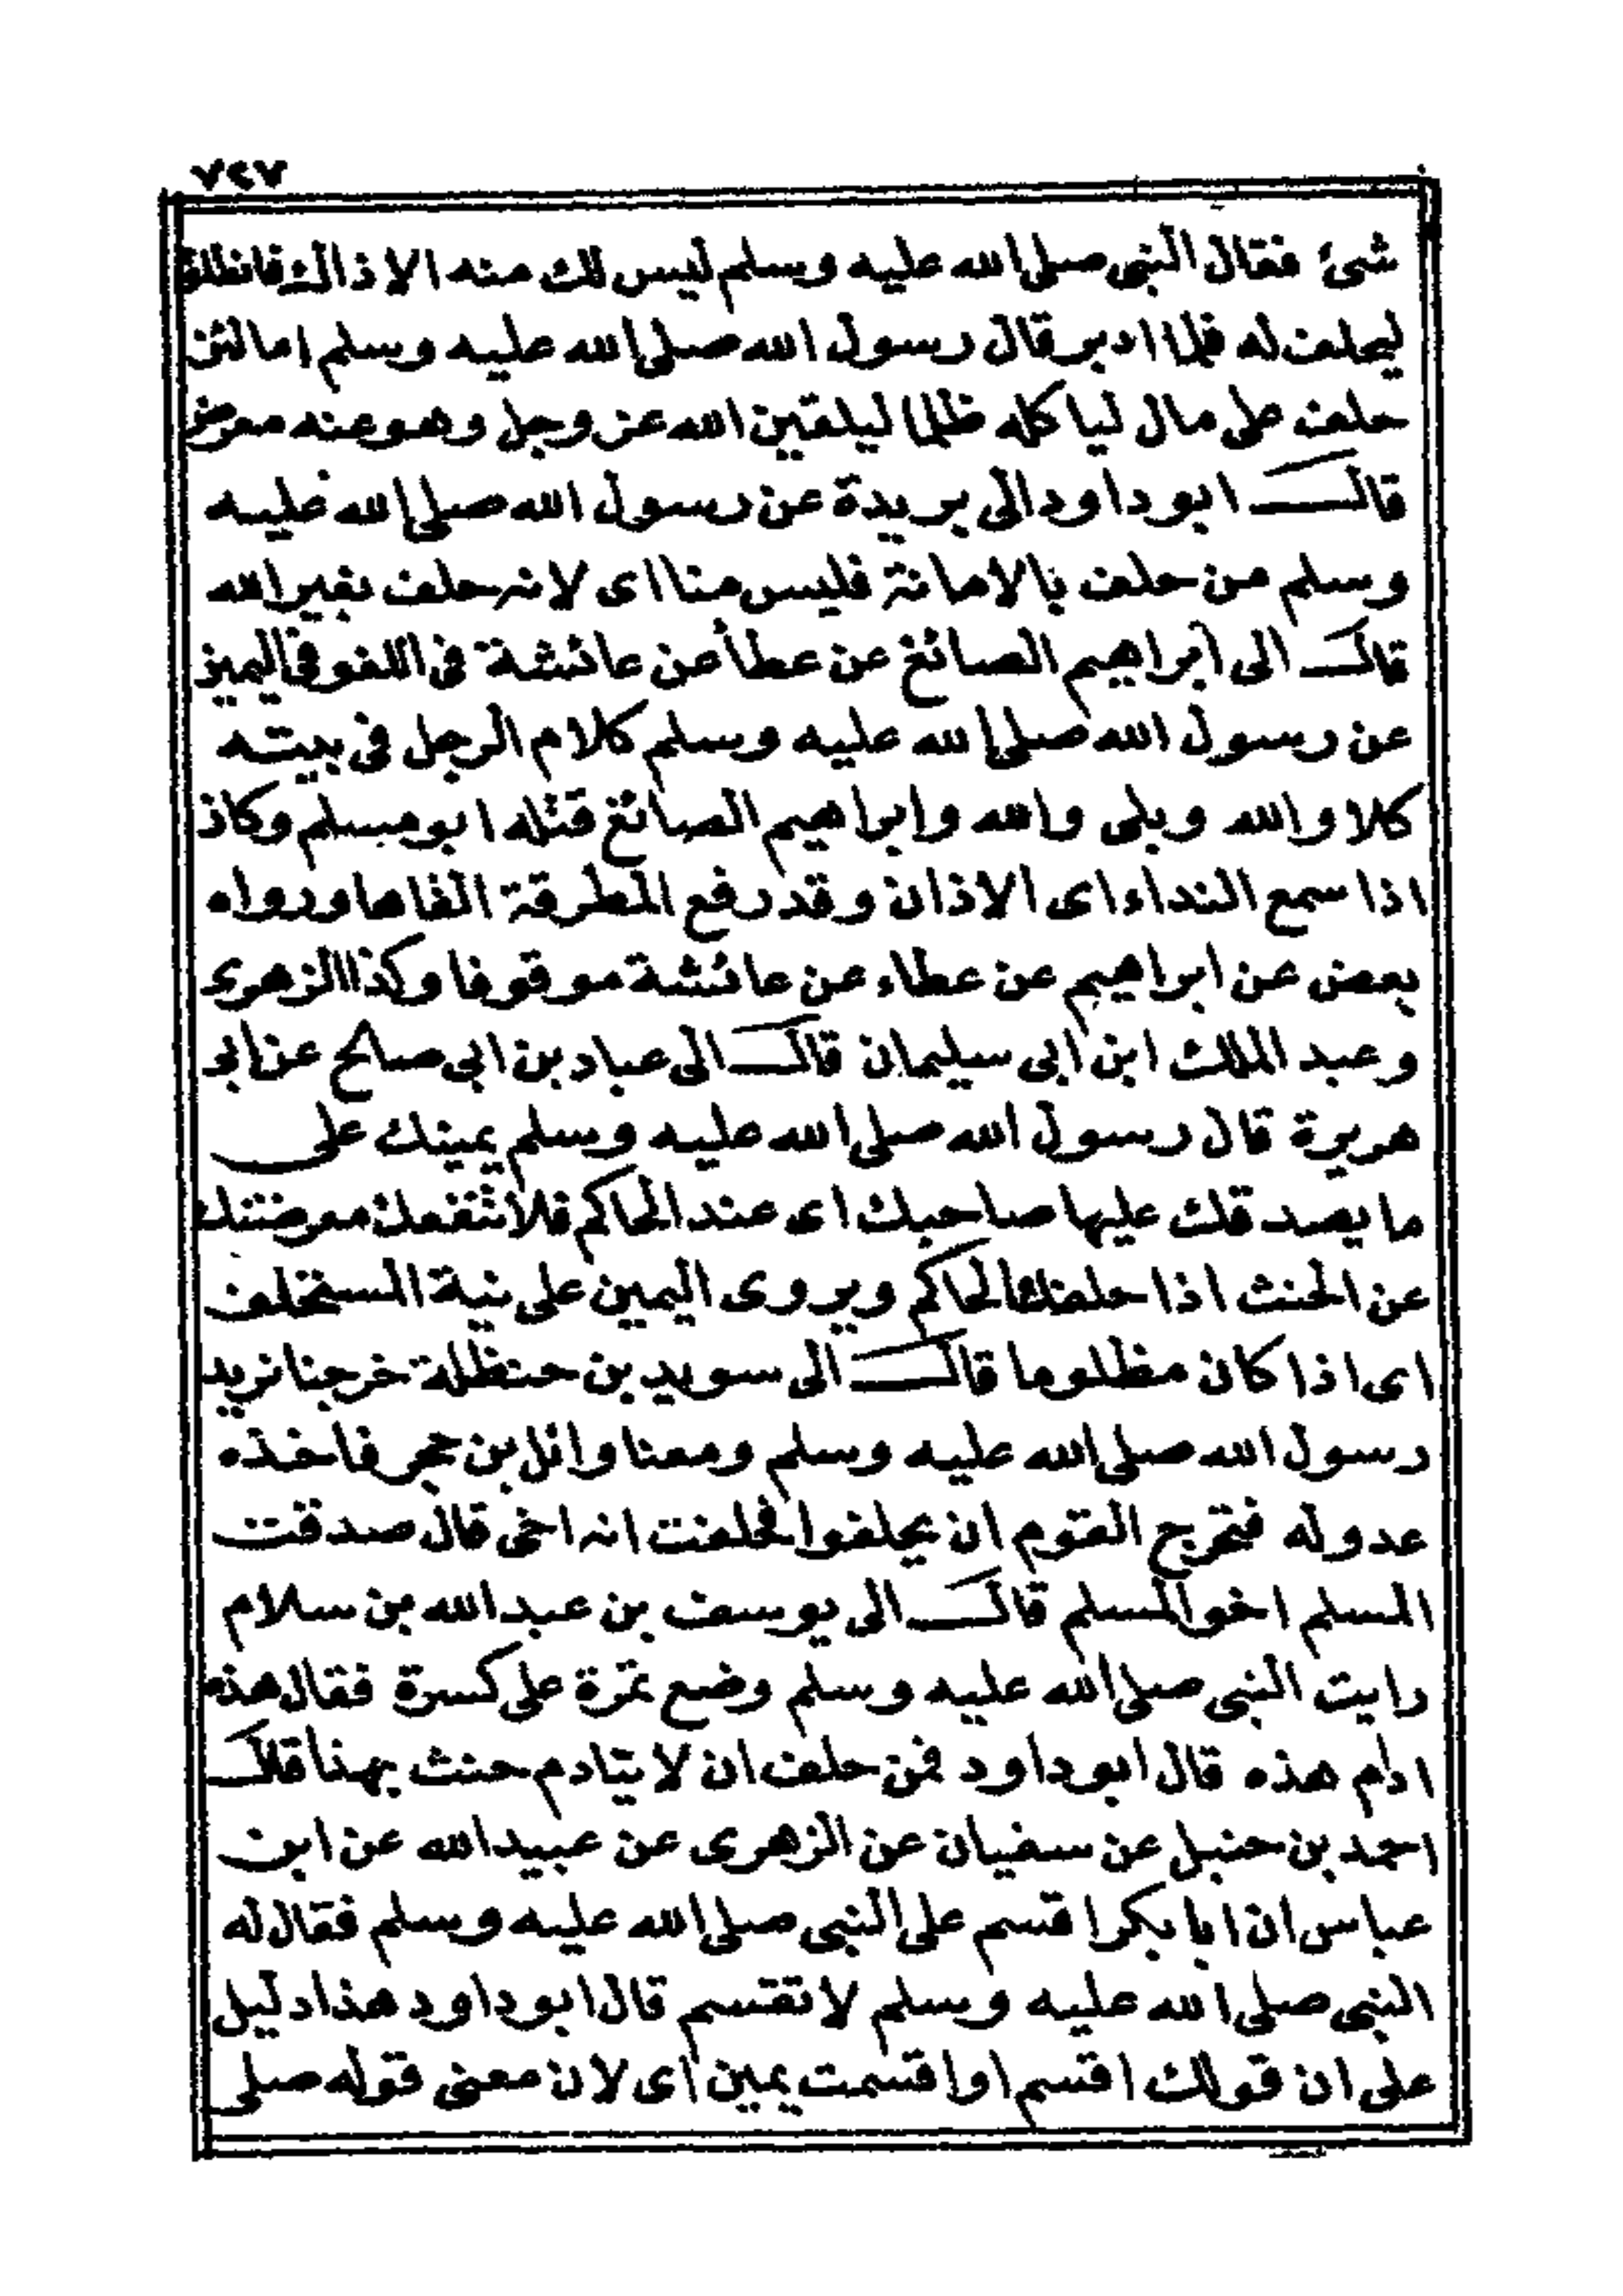 ٧٤٧
شئ فقال النبى صلى الله عليه وسلم ليس لك منه الا ذاالك فانطلق
ليحلف له فلما ادبر قال رسول الله صلى الله عليه وسلم اما لئن
حلف على مال لياكله ظلما ليلقين الله عز وجل وهو عنه معرض
قال ابو داود الى بريدة عن رسول الله صلى الله عليه
وسلم من حلف بالامانة فليس منا اى لانه حلف بغير الله
قال الى ابراهيم الصائغ عن عطأ عن عائشة فى اللغو فى اليمين
عن رسول الله صلى الله عليه وسلم كلام الرجل فى بيته
كلا والله وبلى والله وابراهيم الصائغ قتله ابو مسلم وكان
اذا سمع النداء اى الاذان وقد رفع المطرقة القاها ورواه
بعض عن ابراهيم عن عطاء عن عائشة موقوفا وكذا الزهرى
وعبد الملك ابن ابى سليمان قال الى عباد بن ابى صالح عن ابى
هريرة قال رسول الله صلى الله عليه وسلم يمينك على
ما يصدقك عليها صاحبك اى عند الحاكم فلا تنفعك معرضتك
عن الحنث اذا حلفك الحاكم ويروى اليمين على نية المستحلف
اى اذا كان مظلوما قال الى سويد بن حنظلة خرجنا نريد
رسول الله صلى الله عليه وسلم ومعنا وائل بن حجر فاخذه
عدو له فتحرج القوم ان يحلفوا فحلفت انه اخى قال صدقت
المسلم اخو المسلم قال الى يوسف بن عبد الله بن سلام
رايت النبى صلى الله عليه وسلم وضع تمرة على كسرة فقال هذه
ادام هذه قال ابو داود فمن حلف ان لا يتادم حنث بهذا قال
احمد بن حنبل عن سفيان عن الزهرى عن عبيد الله عن ابن
عباس ان ابا بكر اقسم على النبى صلى الله عليه وسلم فقال له
النبى صلى الله عليه وسلم لا تقسم قال ابو داود هذا دليل
على ان قولك اقسم او اقسمت يمين اى لان معنى قوله صلى